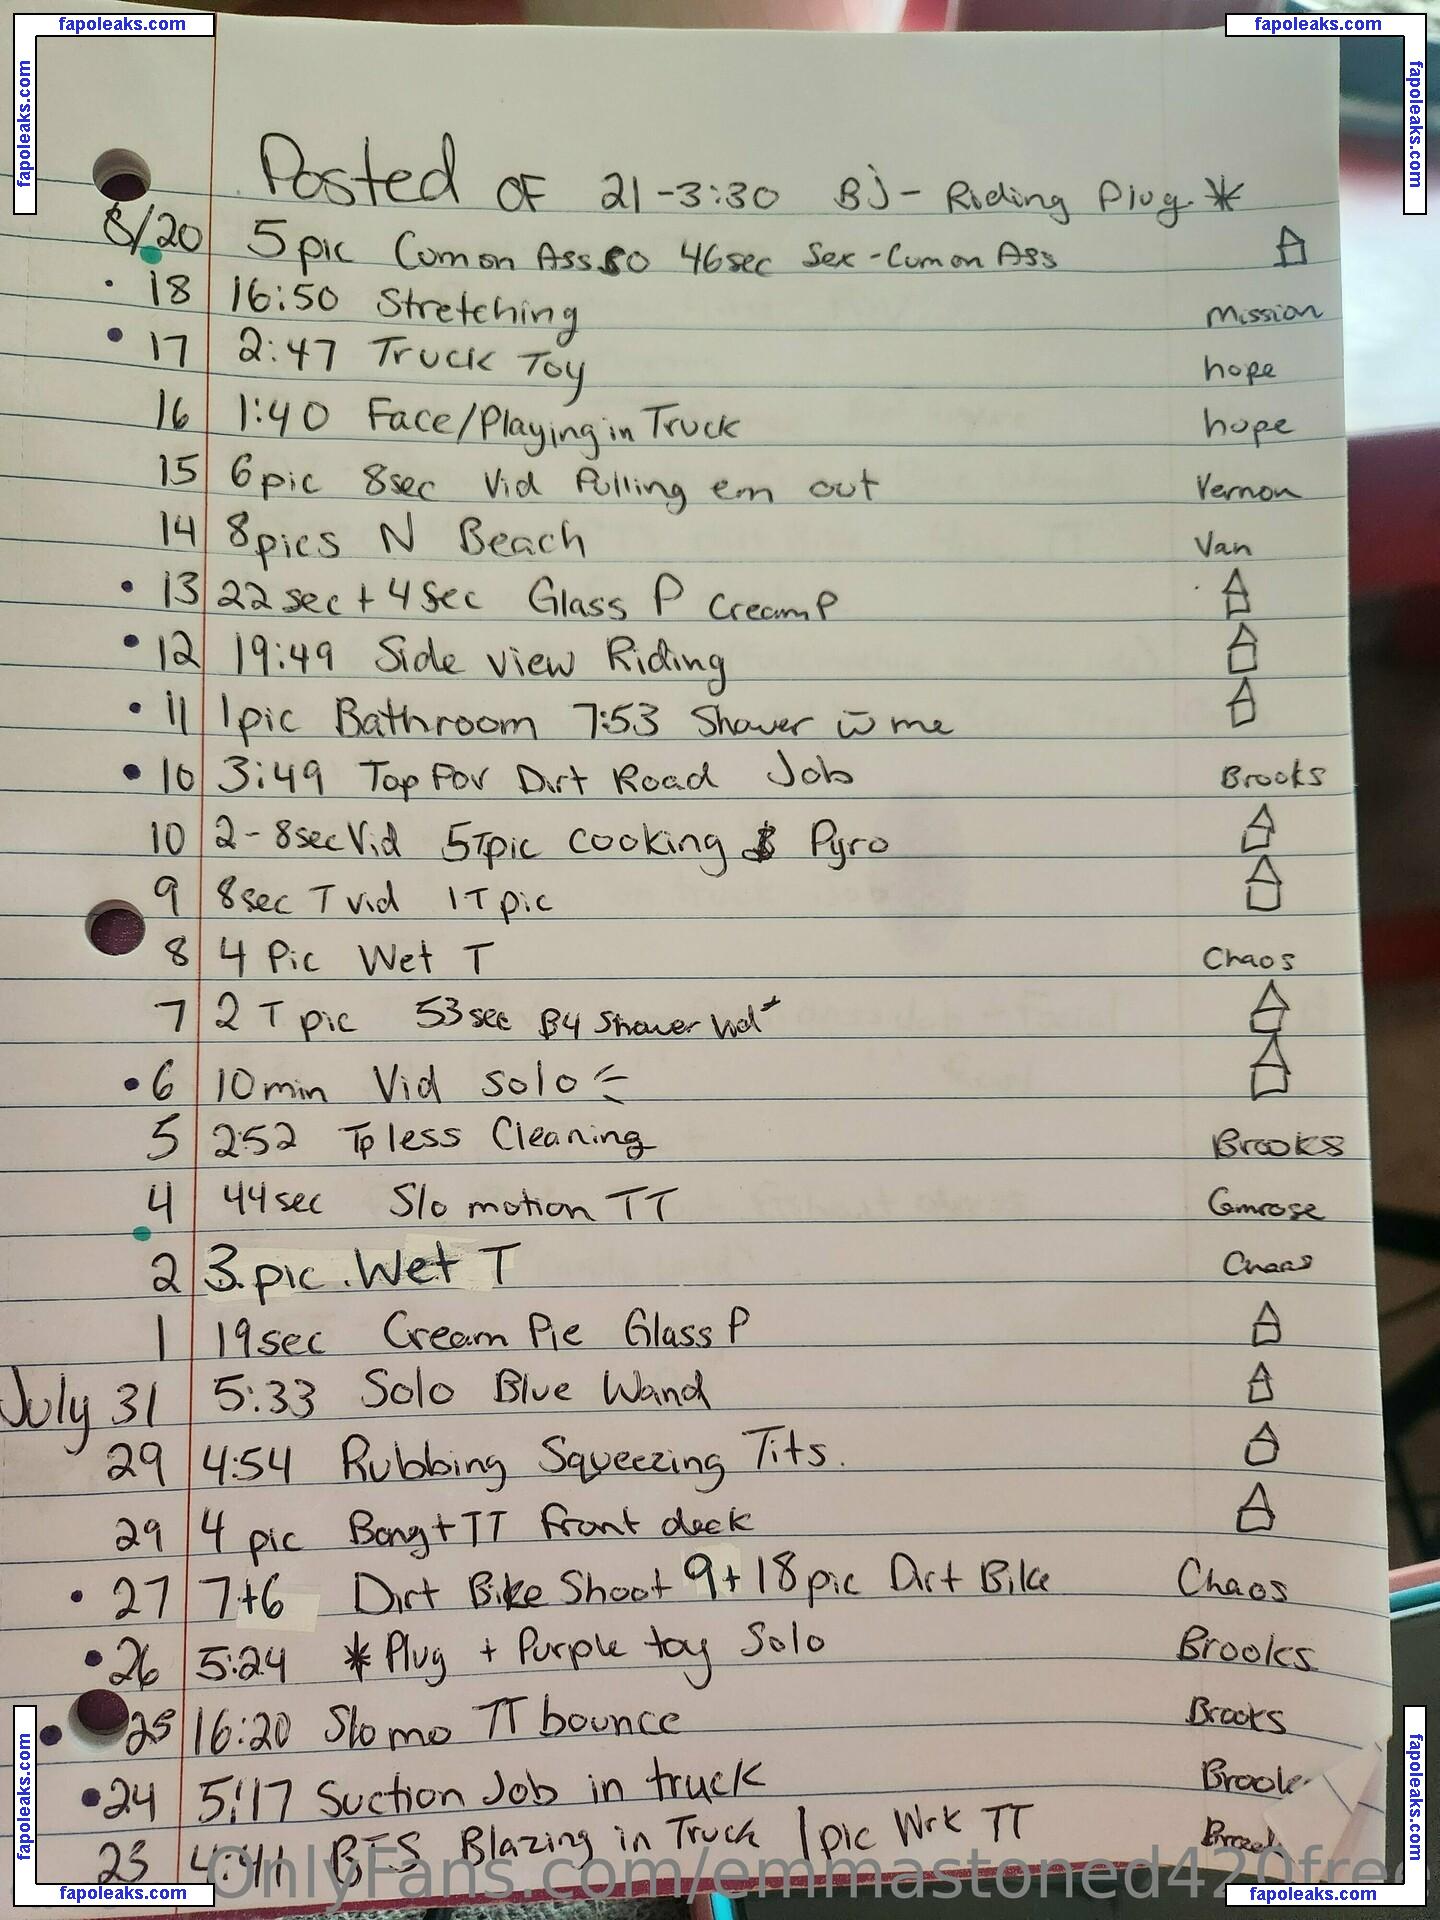 fapoleaks.com fapoleaks.com
fapoleaks.com fapoleaks.com
Posted OF 21-3:30 BJ- Riding Plug *
8/20 5pic Cum on Ass 46sec Sex-Cum on Ass
18 16:50 Stretching Mission
17 2:47 Truck Toy hope
16 1:40 Face/Playing in Truck hope
15 6pic 8sec Vid Pulling em out Vernon
14 8pics N Beach Van
13 22sec+4sec Glass P CreamP
12 19:49 Side view Riding
11 1pic Bathroom 7:53 Shower me
10 3:49 Top POV Dirt Road Job Brooks
10 2-8sec Vid 5Tpic cooking Pyro
9 8sec T vid 1T pic
8 4 Pic Wet T Chaos
7 2 T pic 53sec B4 Shower Vid*
6 10min Vid solo
5 2:52 Tpless Cleaning Brooks
4 44sec Slo motion TT Camrose
2 3.pic.Wet T Chaos
1 19sec Cream Pie Glass P
July 31 5:33 Solo Blue Wand
29 4:54 Rubbing Squeezing Tits.
29 4 pic Bong+TT front deck
27 7+6 Dirt Bike Shoot 9+18pic Dirt Bike Chaos
26 5:24 *Plug + Purple toy Solo Brooks
25 16:20 Slo mo TT bounce Brooks
24 5:17 Suction Job in truck
23 4:41 BTS Blazing in Truck 1pic Wrk TT
OnlyFans.com/emmastoned420free
fapoleaks.com fapoleaks.com
fapoleaks.com fapoleaks.com